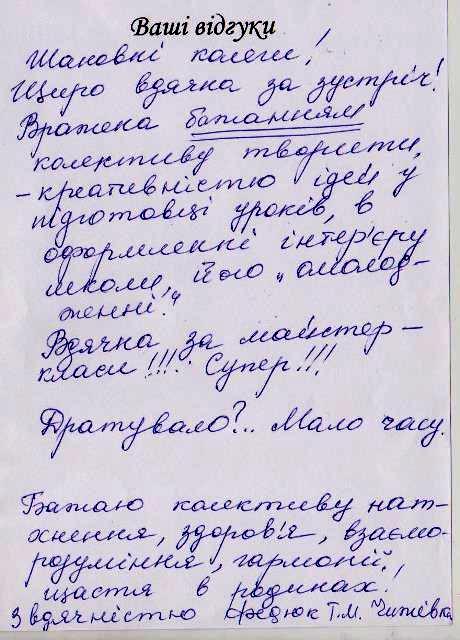 Ваші відгуки
Шановні колеги!
Щиро вдячна за зустріч!
Вражена бажанням
колективу творити,
- креативністю ідей у
підготовці уроків, в
оформленні інтер'єру
школи, його „омолод-
женні".
Вдячна за майстер-
класи!!!! Супер!!!
Дратувало?.. Мало часу.
Бажаю колективу нат-
хнення, здоров'я, взаємо-
розуміння, гармонії,
щастя в родинах!
З вдячністю Федюк Т.М. Чижівка